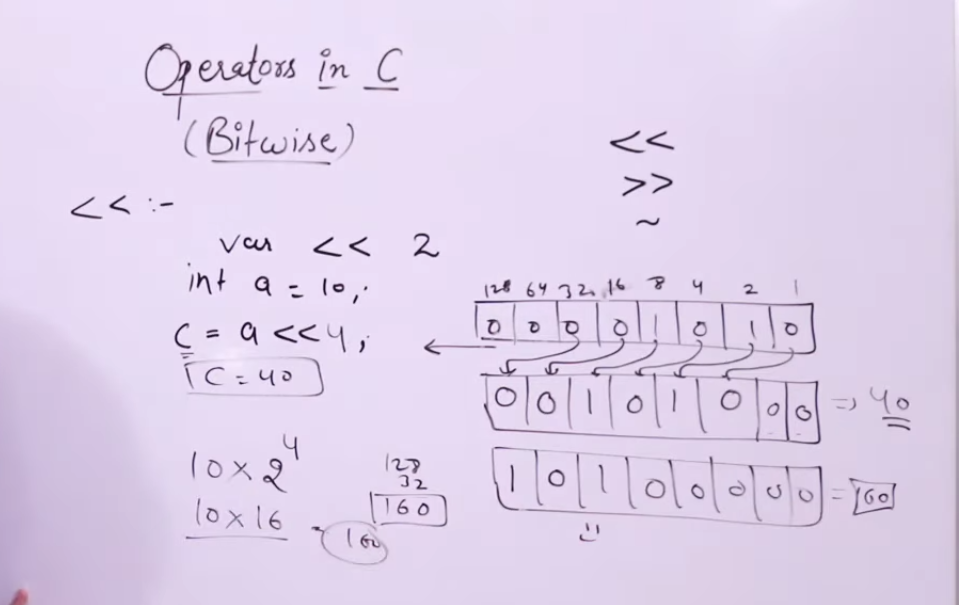 Operators in C
(Bitwise)
<<
>>
~
<< :-
var << 2
int a = 10;
C = a <<4;
C = 40
128 64 32 16 8 4 2 1
0 0 0 0 1 0 1 0
0 0 1 0 1 0 0 0 => 40
1 0 1 0 0 0 0 0 = 160
10 x 2^4
10 x 16 = 160
128
32
160